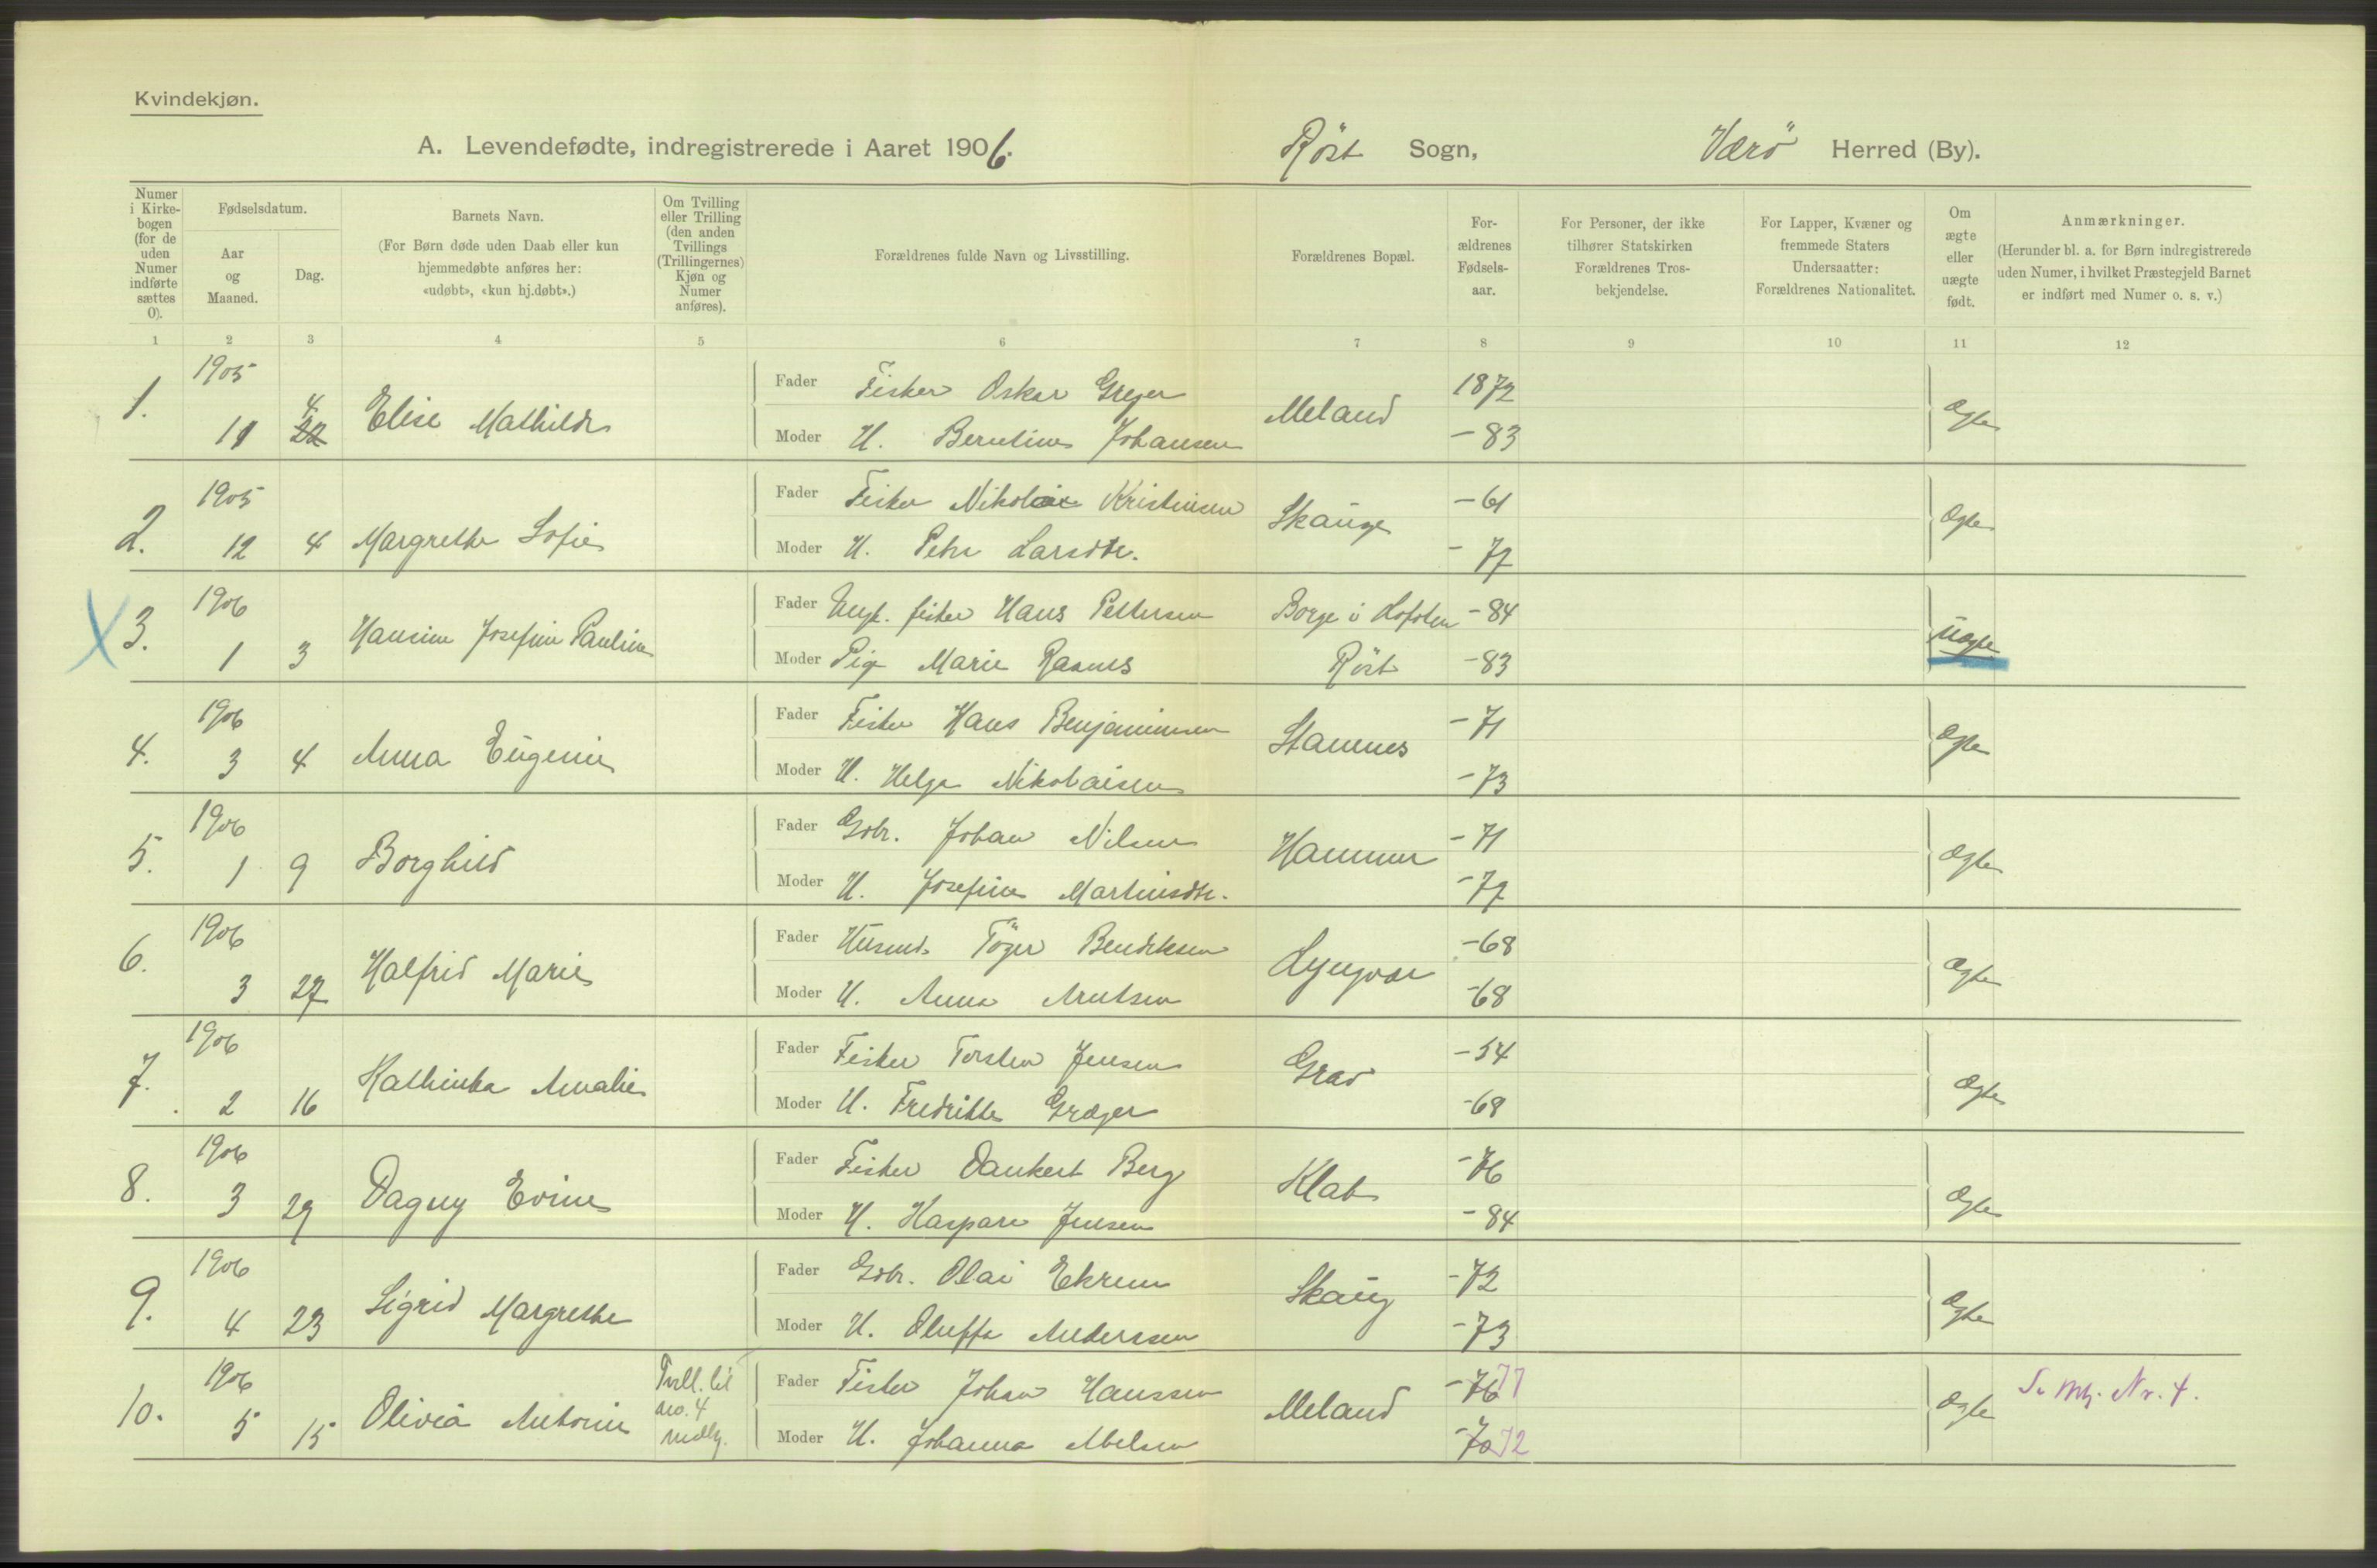 Kvindekjøn.
A. Levendefødte, indregistrerede i Aaret 1906. Röst Sogn, Værö Herred (By).
Numer i Kirkebogen (for de uden Numer indførte sættes 0).
Fødselsdatum.
Aar og Maaned.
Dag.
Barnets Navn.
(For Børn døde uden Daab eller kun hjemmedøbte anføres her: «udøbt», «kun hj.døbt».)
Om Tvilling eller Trilling (den anden Tvillings (Trillingernes) Kjøn og Numer anføres).
Forældrenes fulde Navn og Livsstilling.
Forældrenes Bopæl.
Forældrenes Fødselsaar.
For Personer, der ikke tilhører Statskirken Forældrenes Trosbekjendelse.
For Lapper, Kvæner og fremmede Staters Undersaatter: Forældrenes Nationalitet.
Om ægte eller uægte født.
Anmærkninger.
(Herunder bl. a. for Børn indregistrerede uden Numer, i hvilket Præstegjeld Barnet er indført med Numer o. s. v.)
1 2 3 4 5 6 7 8 9 10 11 12
1. 1905 11 4 22 Elise Mathilde Fader Fisker Oskar Greger Meland 1872 Ægte
Moder H. Berntine Johansen -83
2. 1905 12 4 Margrethe Sofie Fader Fisker Nikolai Kristensen Skauge -61 Ægte
Moder H. Petra Larsdtr. -77
X 3. 1906 1 3 Hansine Josefine Pauline Fader Ungk. fisker Hans Pettersen Borge i Lofoten -84 Uægte
Moder Pige Marie Raanes Röst -83
4. 1906 3 4 Anna Eugenie Fader Fisker Hans Benjaminsen Stamnes -71 Ægte
Moder H. Helga Nikolaisen -73
5. 1906 1 9 Borghild Fader Gbr. Johan Nilsen Hammer -71 Ægte
Moder H. Josefine Martinsdtr. -77
6. 1906 3 27 Halfrid Marie Fader Husmd. Töger Bendiksen Lyngvær -68 Ægte
Moder H. Anna Arntsen -68
7. 1906 2 16 Kathinka Amalie Fader Fisker Torsten Jensen Grav -54 Ægte
Moder H. Fredrikke Græger -68
8. 1906 3 29 Dagny Evine Fader Fisker Dankert Berg Klab -76 Ægte
Moder H. Kaspara Jensen -84
9. 1906 4 23 Sigrid Margrethe Fader Gbr. Olai Ekrem Skaug -72 Ægte
Moder H. Oluffa Anderssen -73
10. 1906 5 15 Olivia Antonie Tvill. til no. 4 mdlkj. Fader Fisker Johan Hanssen Meland -76 77 Ægte Se Mk. Nr. 4.
Moder H. Johanna Abelsen -70 72